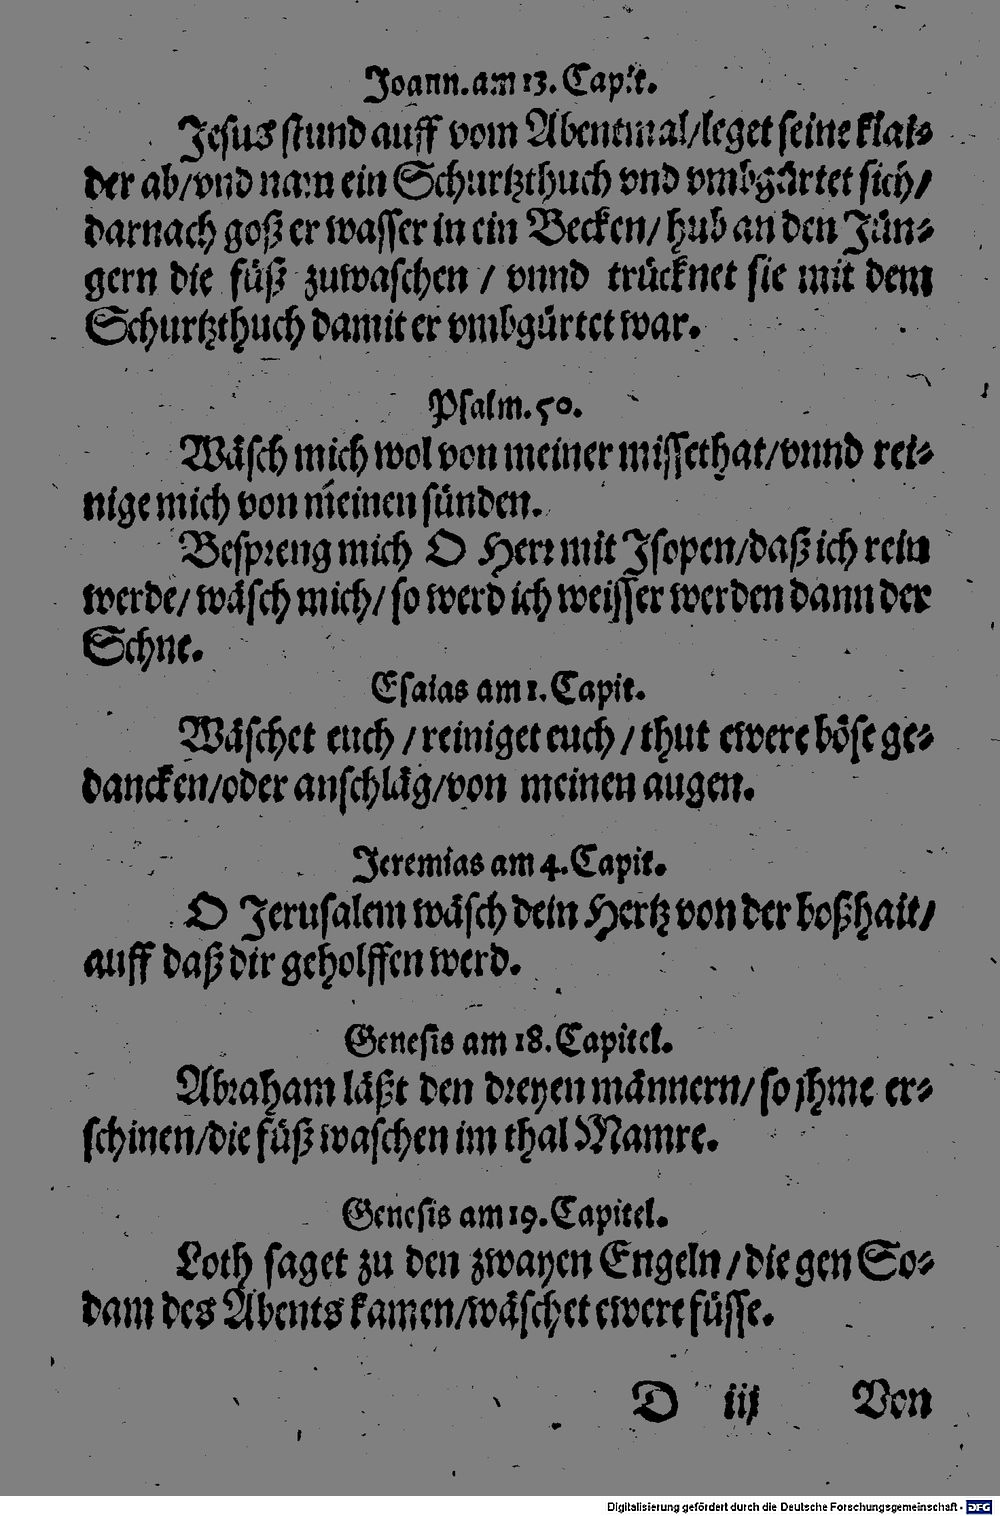 Joann. am 13. Capit.
Jesus stund auff vom Abentmal/ leget seine klai-
der ab/ vnd nam ein Schurtzthuch vnd vmbgürtet sich/
darnach goß er wasser in ein Becken/ hub an den Jün-
gern die füß zuwaschen / vnnd trücknet sie mit dem
Schurtzthuch damit er vmbgürtet war.
Psalm. 50.
Wäsch mich wol von meiner missethat/ vnnd rei-
nige mich von meinen sünden.
Bespreng mich O Herr mit Jsopen/ daß ich rein
werde/ wäsch mich/ so werd ich weisser werden dann der
Schne.
Esaias am 1. Capit.
Wäschet euch / reiniget euch / thut ewere böse ge-
dancken/ oder anschläg/ von meinen augen.
Jeremias am 4. Capit.
O Jerusalem wäsch dein Hertz von der boßhait/
auff daß dir geholffen werd.
Genesis am 18. Capitel.
Abraham läßt den dreyen männern/ so jhme er-
schinen/ die füß waschen im thal Mamre.
Genesis am 19. Capitel.
Loth saget zu den zwayen Engeln / die gen So-
dam des Abents kamen/ wäschet ewere füsse.
D iij Von
Digitalisierung gefördert durch die Deutsche Forschungsgemeinschaft - DFG